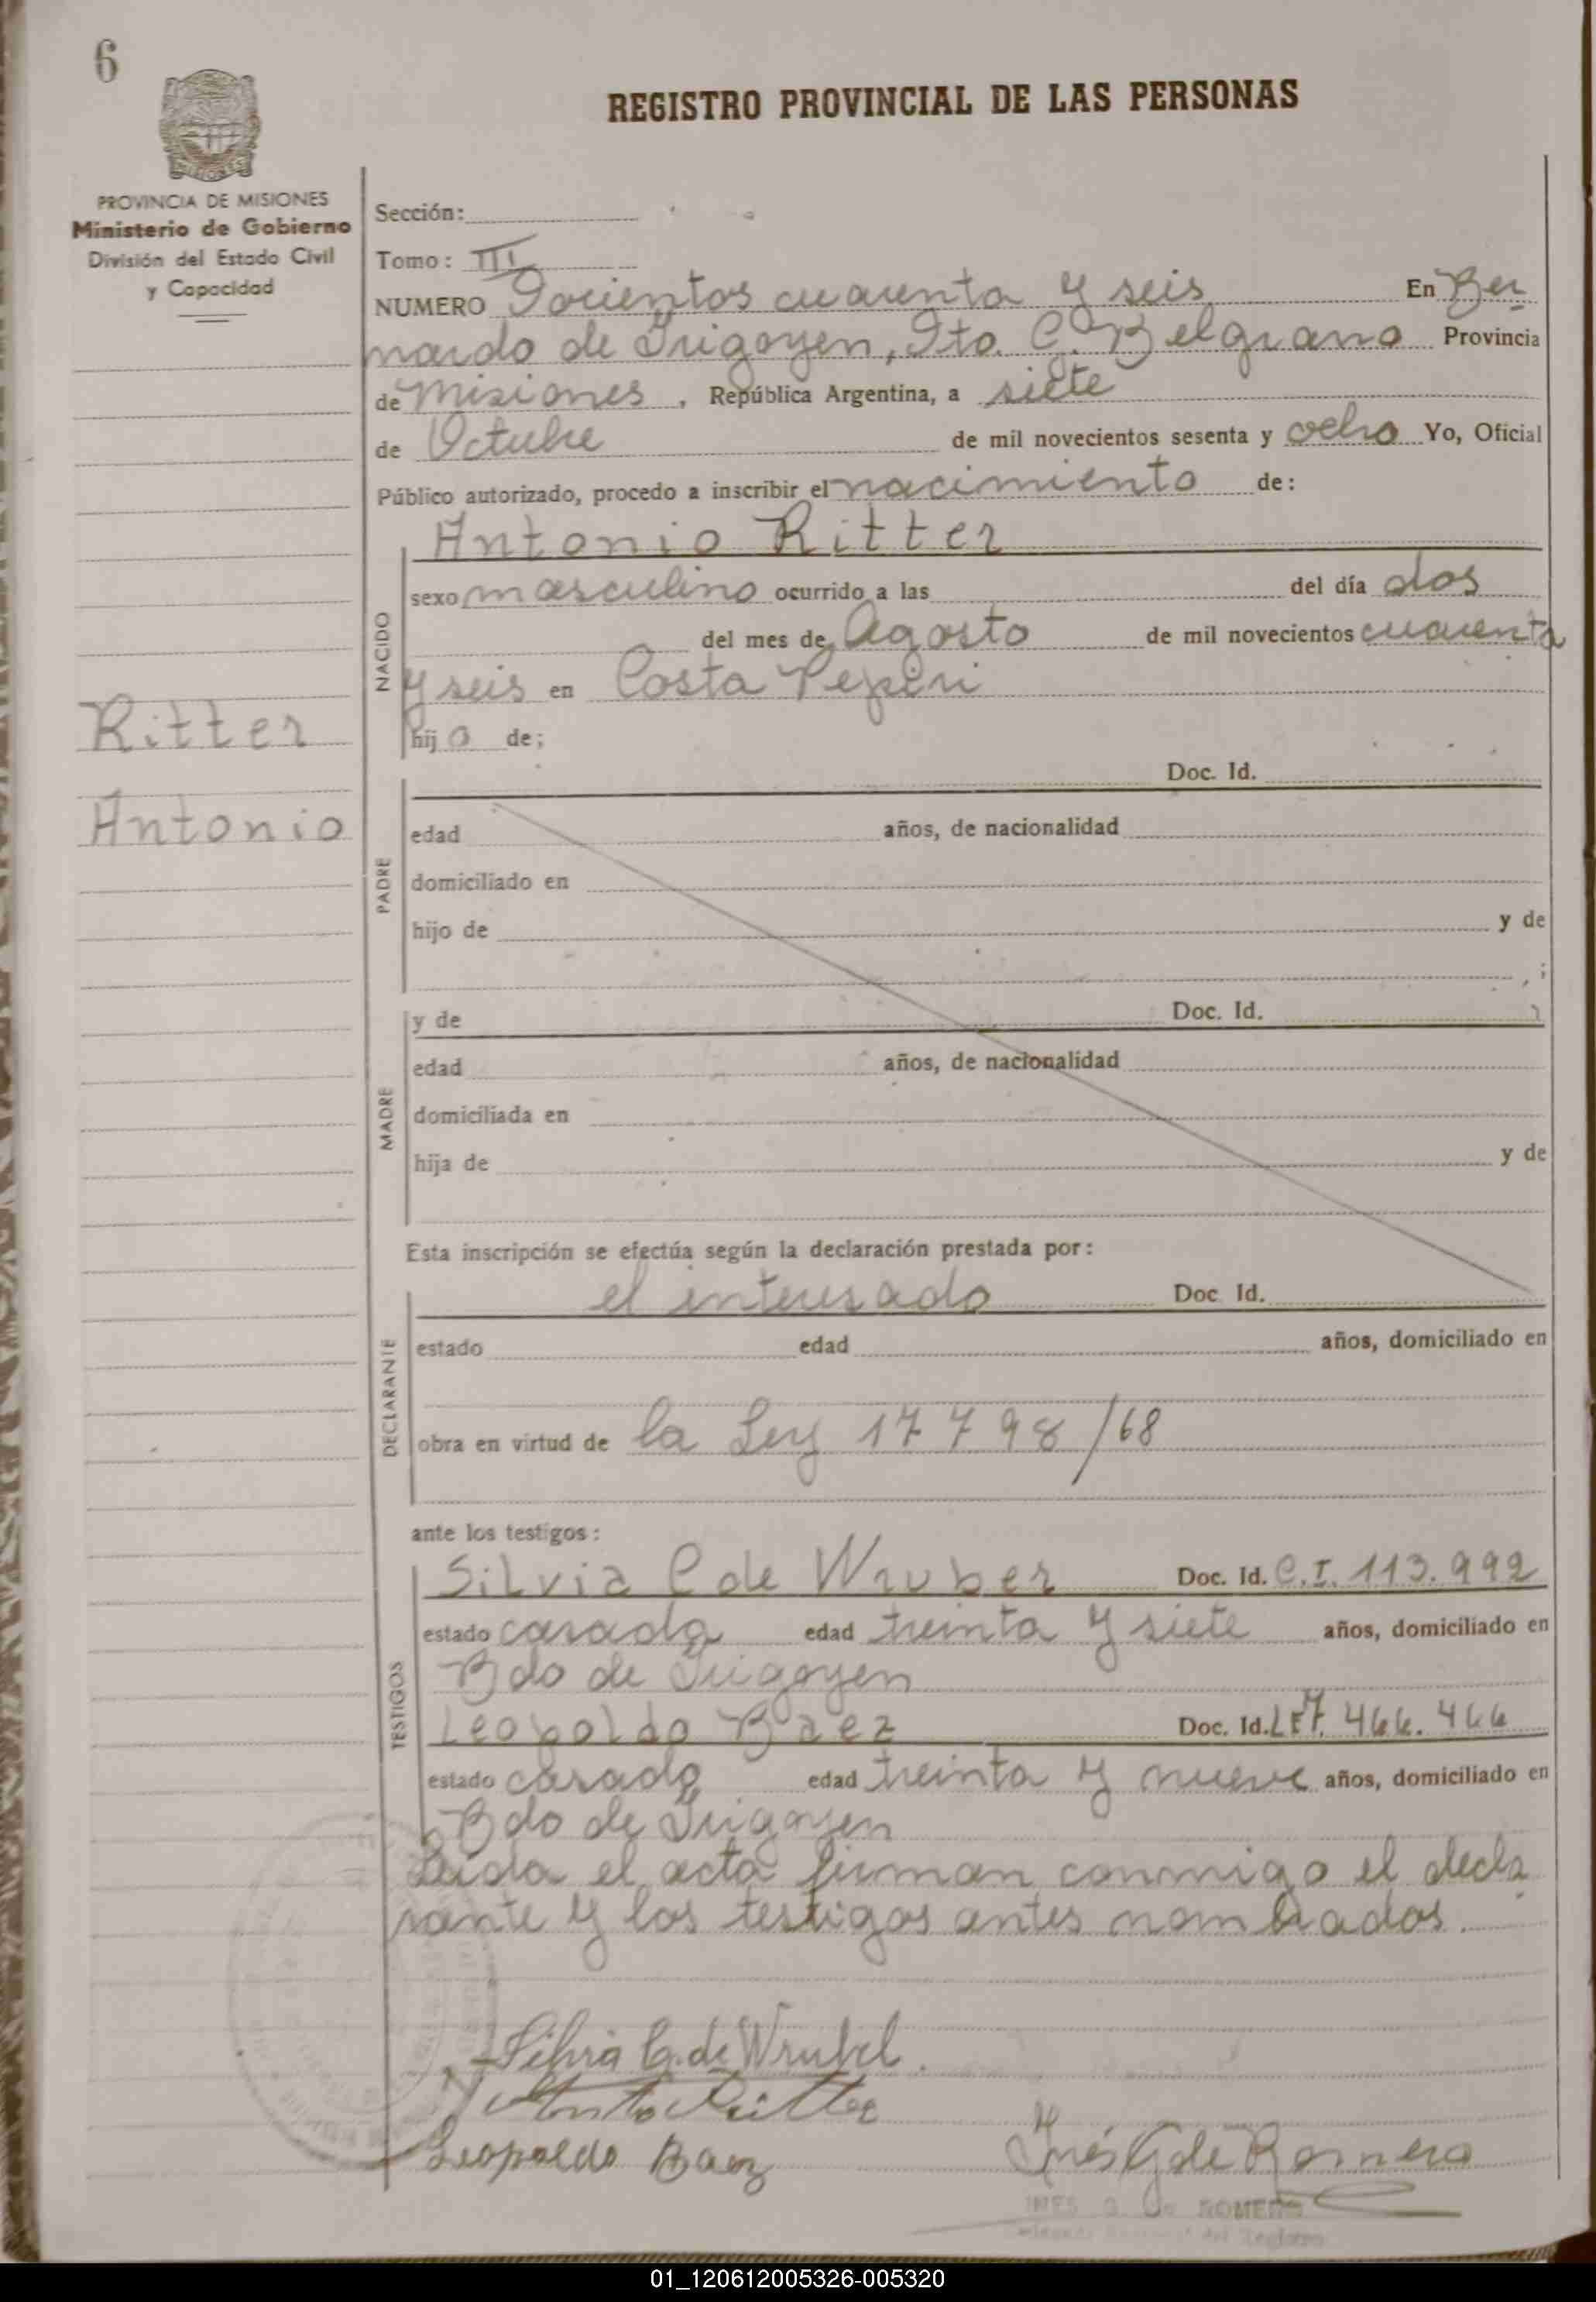 6
REGISTRO PROVINCIAL DE LAS PERSONAS
PROVINCIA DE MISIONES
Ministerio de Gobierno
División del Estado Civil
y Capacidad
Sección:
Tomo: III
NUMERO Docientos cuarenta y seis En Ber
nardo de Irigoyen, Dto. Gº Belgrano Provincia
de Misiones, República Argentina, a siete
de Octubre de mil novecientos sesenta y ocho Yo, Oficial
Público autorizado, procedo a inscribir el nacimiento de:
Antonio Ritter
NACIDO
sexo masculino ocurrido a las del día dos
del mes de Agosto de mil novecientos cuarenta
y seis en Costa Pepiri
hijo de;
Ritter
Antonio
PADRE
Doc. Id.
edad años, de nacionalidad
domiciliado en
hijo de y de
, ;
MADRE
y de Doc. Id.
edad años, de nacionalidad
domiciliada en
hija de y de
Esta inscripción se efectúa según la declaración prestada por:
DECLARANTE
el interesado Doc. Id.
estado edad años, domiciliado en
obra en virtud de la Ley 17798/68
ante los testigos:
TESTIGOS
Silvia C de Wruber Doc. Id. C.I. 113.992
estado casada edad treinta y siete años, domiciliado en
Bdo de Irigoyen
Leopoldo Baez Doc. Id. LE 7. 466. 466
estado casado edad treinta y nueve años, domiciliado en
Bdo de Irigoyen
Leida el acta firman conmigo el decla
rante y los testigos antes nombrados.
Silvia C. de Wrubel.
Antonio Ritter
Leopoldo Baez
Inés G de Romero
INES G. de ROMERO
del Registro
01_120612005326-005320